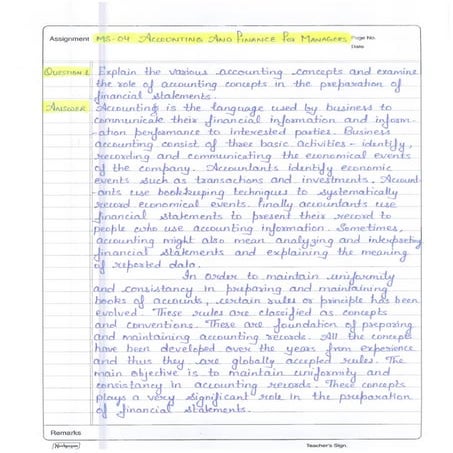 Assignment MS-04 ACCOUNTING AND FINANCE FOR MANAGERS Page No.
Date
QUESTION 1 Explain the various accounting concepts and examine
the role of accounting concepts in the preparation of
financial statements.
ANSWER Accounting is the language used by business to
communicate their financial information and inform
-ation performance to interested parties. Business
accounting consist of three basic activities - identify,
recording and communicating the economical events
of the company. Accountants identify economic
events such as transactions and investments. Account-
ants use bookkeeping techniques to systematically
record economical events. Finally accountants use
financial statements to present their record to
people who use accounting information. Sometimes,
accounting might also mean analyzing and interpreting
financial statements and explaining the meaning
of reported data.
In order to maintain uniformity
and consistancy in preparing and maintaining
books of accounts, certain rules or principle has been
evolved. These rules are classified as concepts
and conventions. These are foundation of preparing
and maintaining accounting records. All the concepts
have been developed over the years from experience
and thus they are globally accepted rules. The
main objective is to maintain uniformity and
consistancy in accounting records. These concepts
plays a very significant role in the preparation
of financial statements.
Remarks
Teacher's Sign.